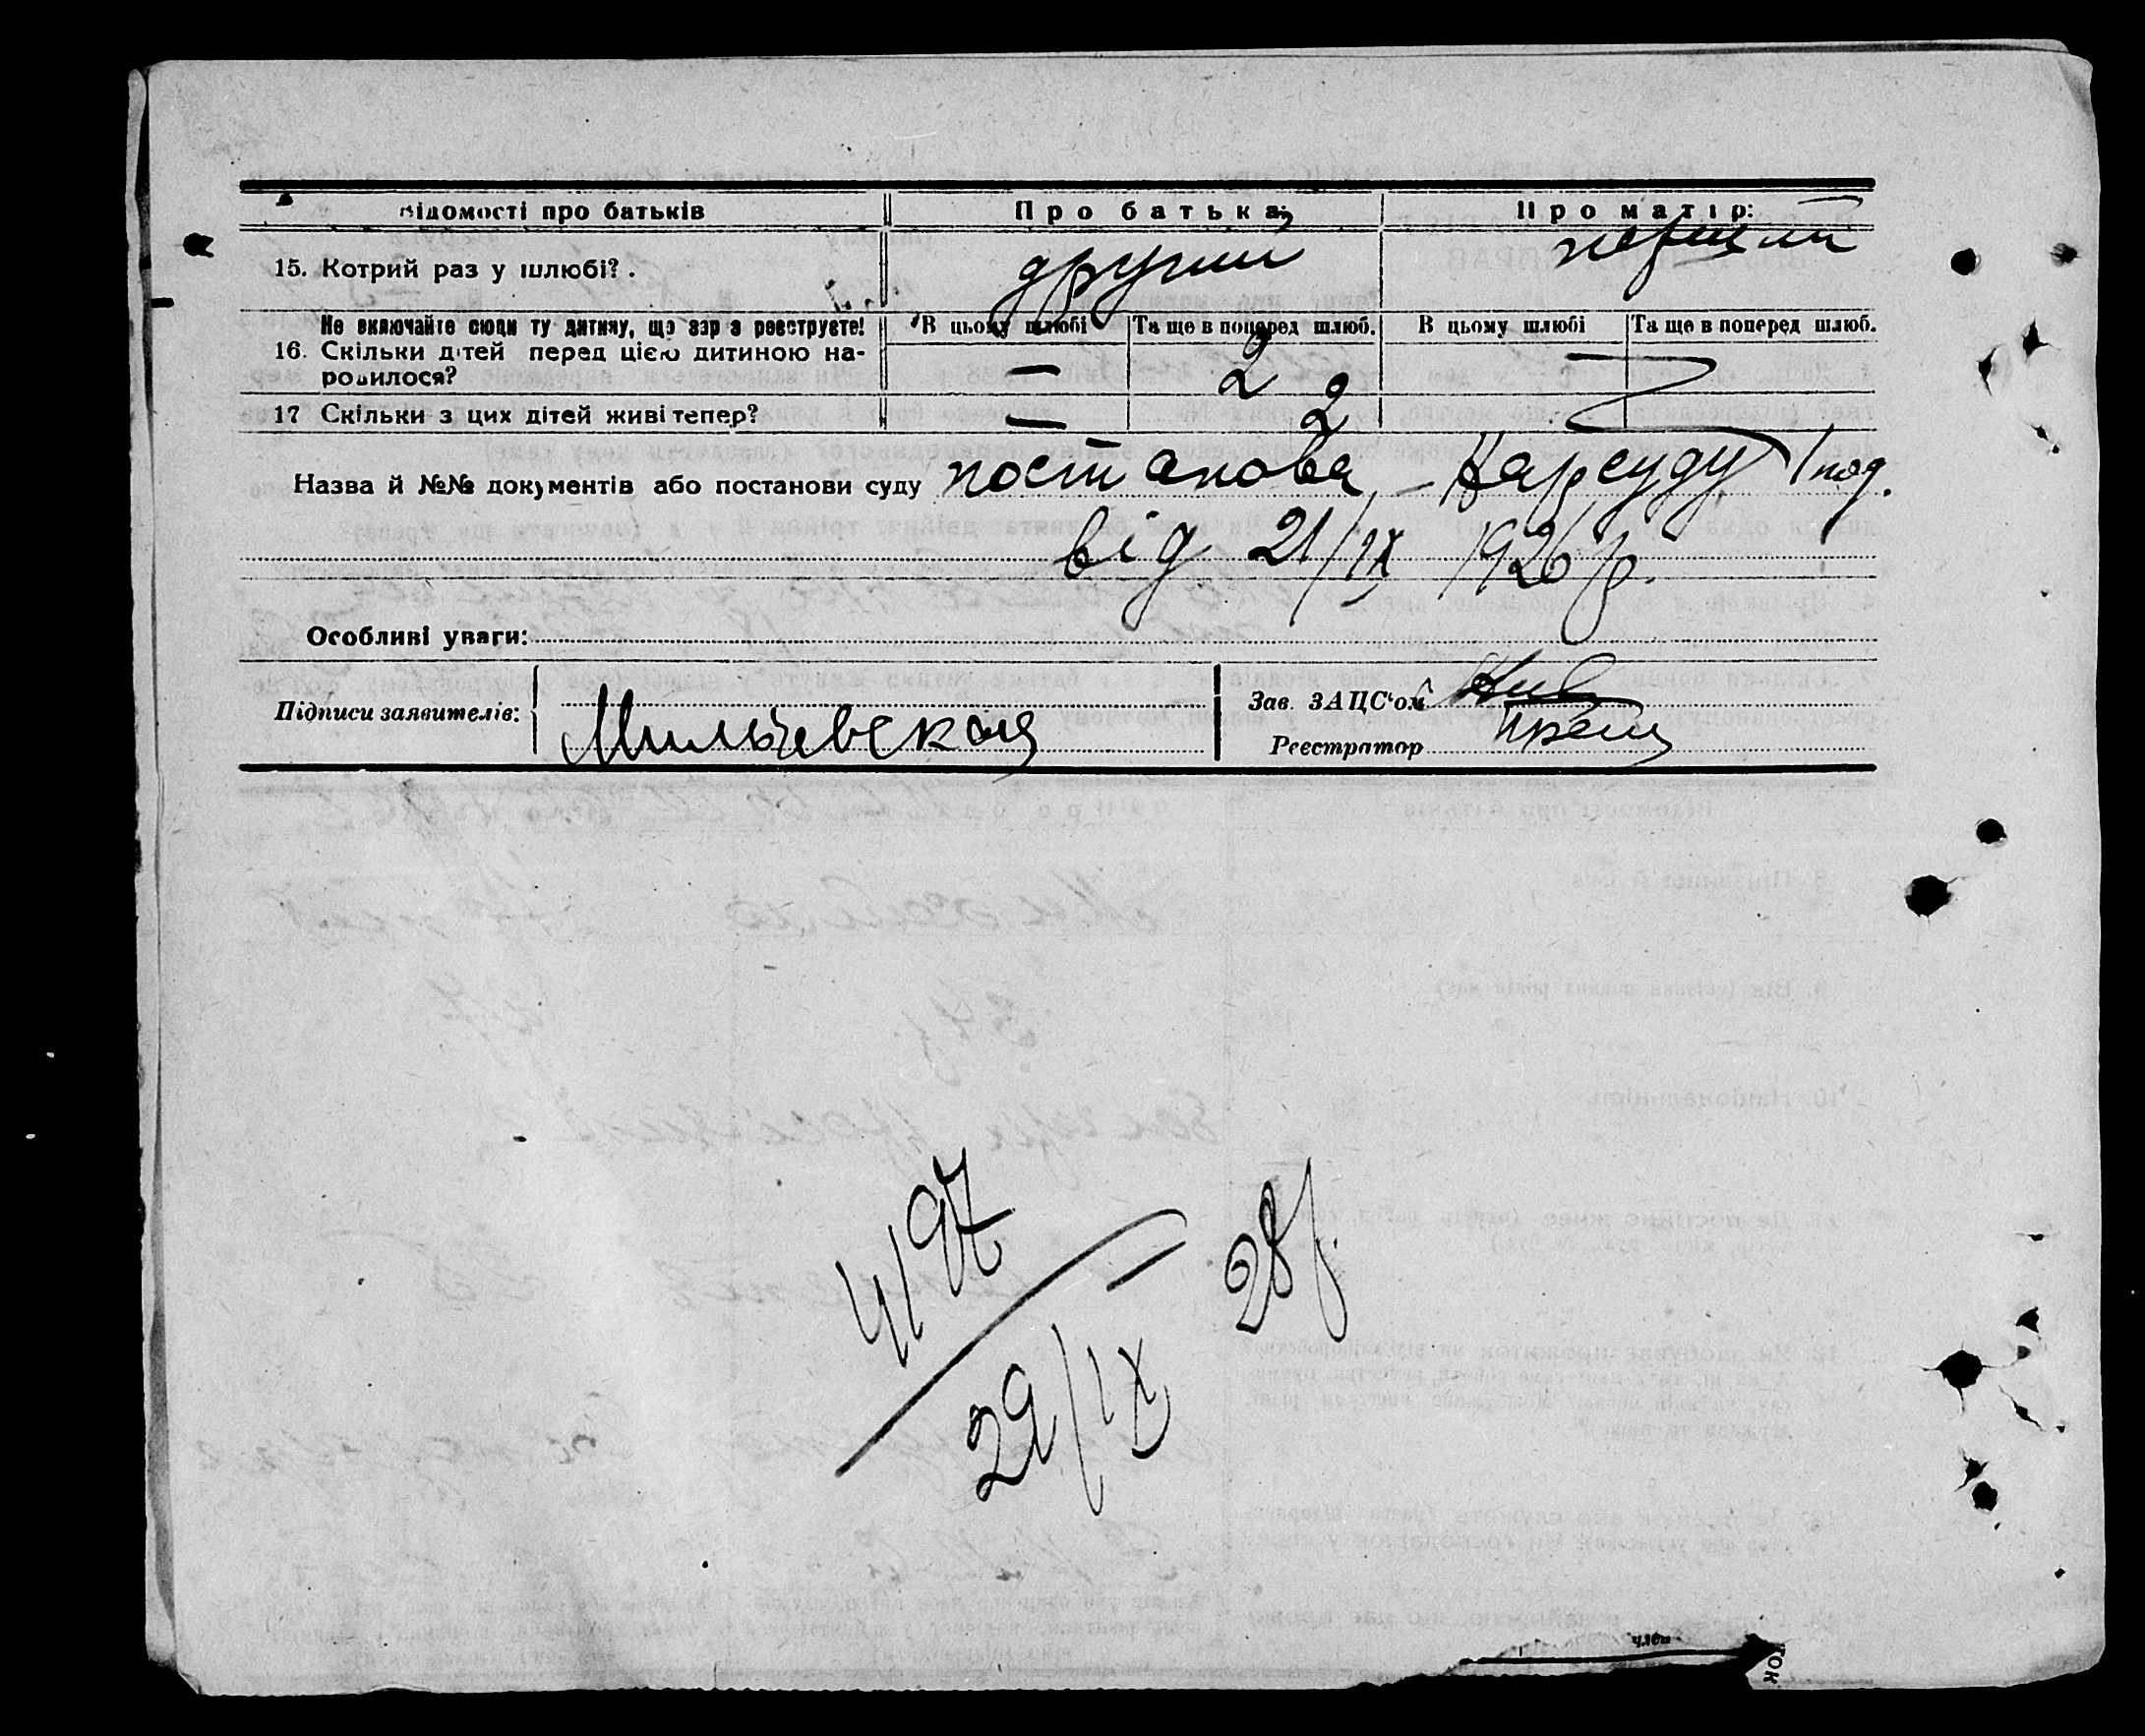 Відомості про батьків Про батька: Про матір:
15. Котрий раз у шлюбі? . другий перший
Не включайте сюди ту дитину, що зараз реєструєте! В цьому шлюбі Та ще в поперед шлюб. В цьому шлюбі Та ще в поперед шлюб.
16. Скільки дітей перед цією дитиною на-
родилося? — 2
17 Скільки з цих дітей живі тепер? — 2
Назва й №№ документів або постанови суду постанова – Нарсуду
від 21/IX 1926 р.
Особливі уваги:
Підписи заявителів: Мильчевская
Зав. ЗАЦС'ом
Реєстратор
4197
29/IX 28 р.